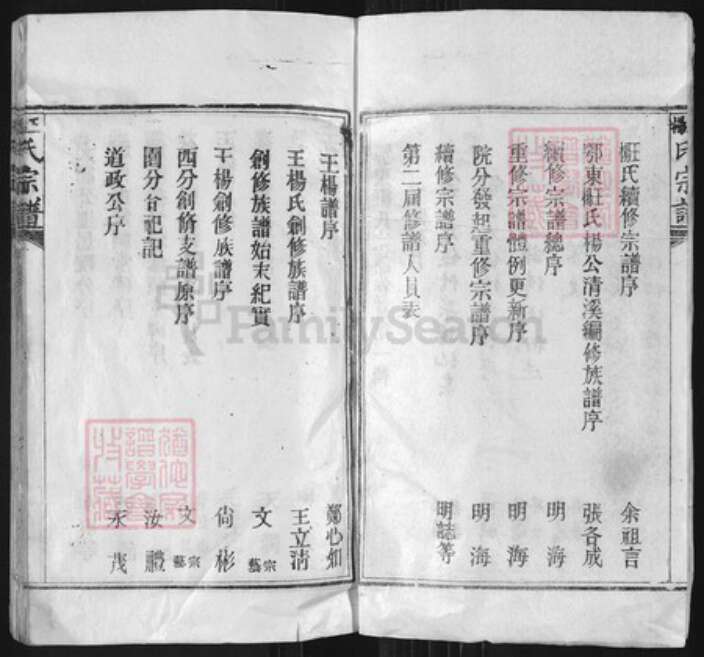 氏宗譜
續修宗譜序 余祖言
鄂東氏楊公清溪編修族譜序 張各成
續修宗譜總序 明海
重修宗譜體例更新序 明海
院分發起重修宗譜序 明海
續修宗譜序 明誌等
第二屆修譜人員表
王楊譜序 鄭心如
王楊氏創修族譜序 王立清
創修族譜始末紀實 文宗藝
王楊創修族譜序 尙彬
西分創修支譜原序 文宗藝
分記 汝禮
道政公序 永茂
氏宗譜
譜學會
收藏
FamilySearch